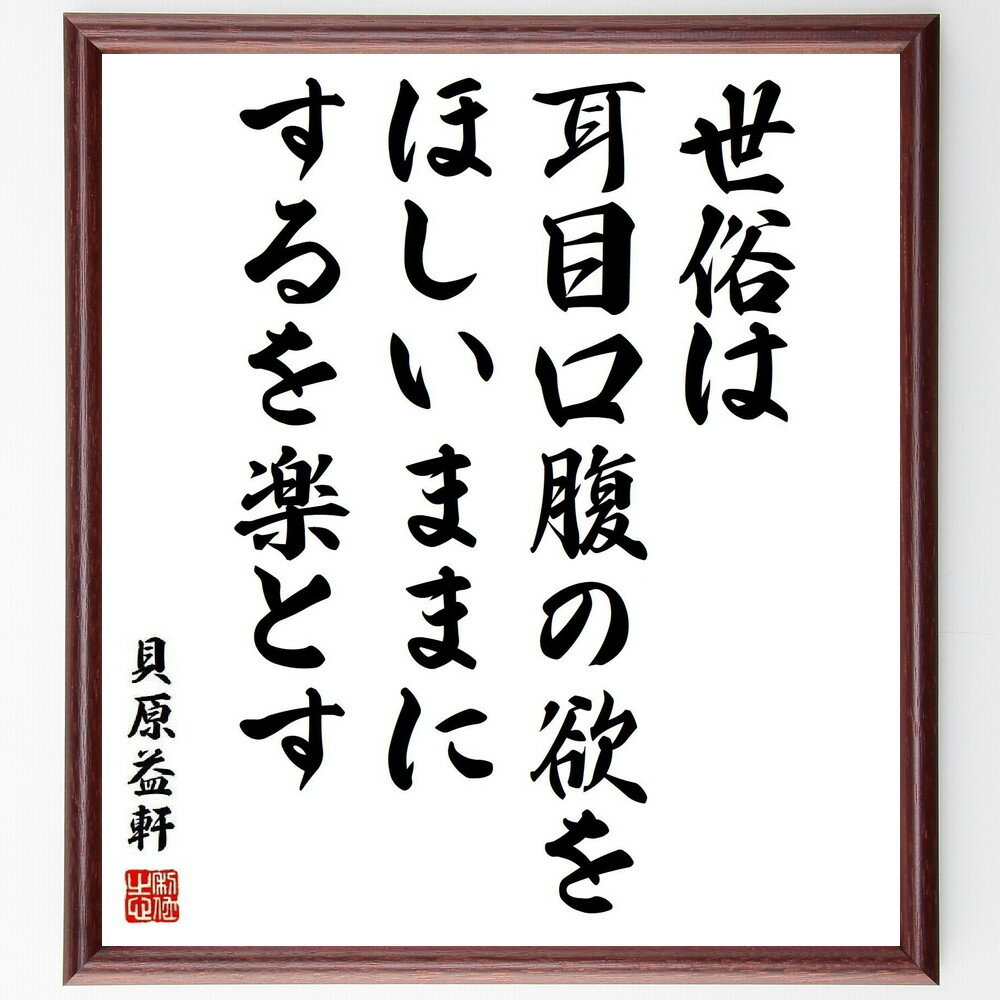 世俗は
耳目口腹の欲を
ほしいままに
するを楽とす
貝原益軒